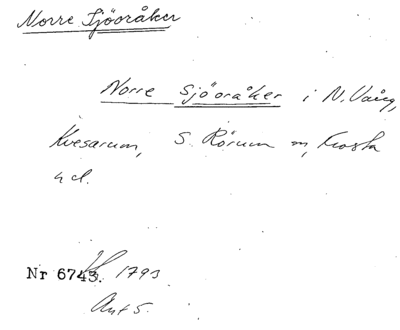 Norre Sjöoråker
Norre Sjöoråker i N. Vång,
Kvesarum, S. Rörum m, Frosta
hd.
Nr 6743. 1793
Ant 5.